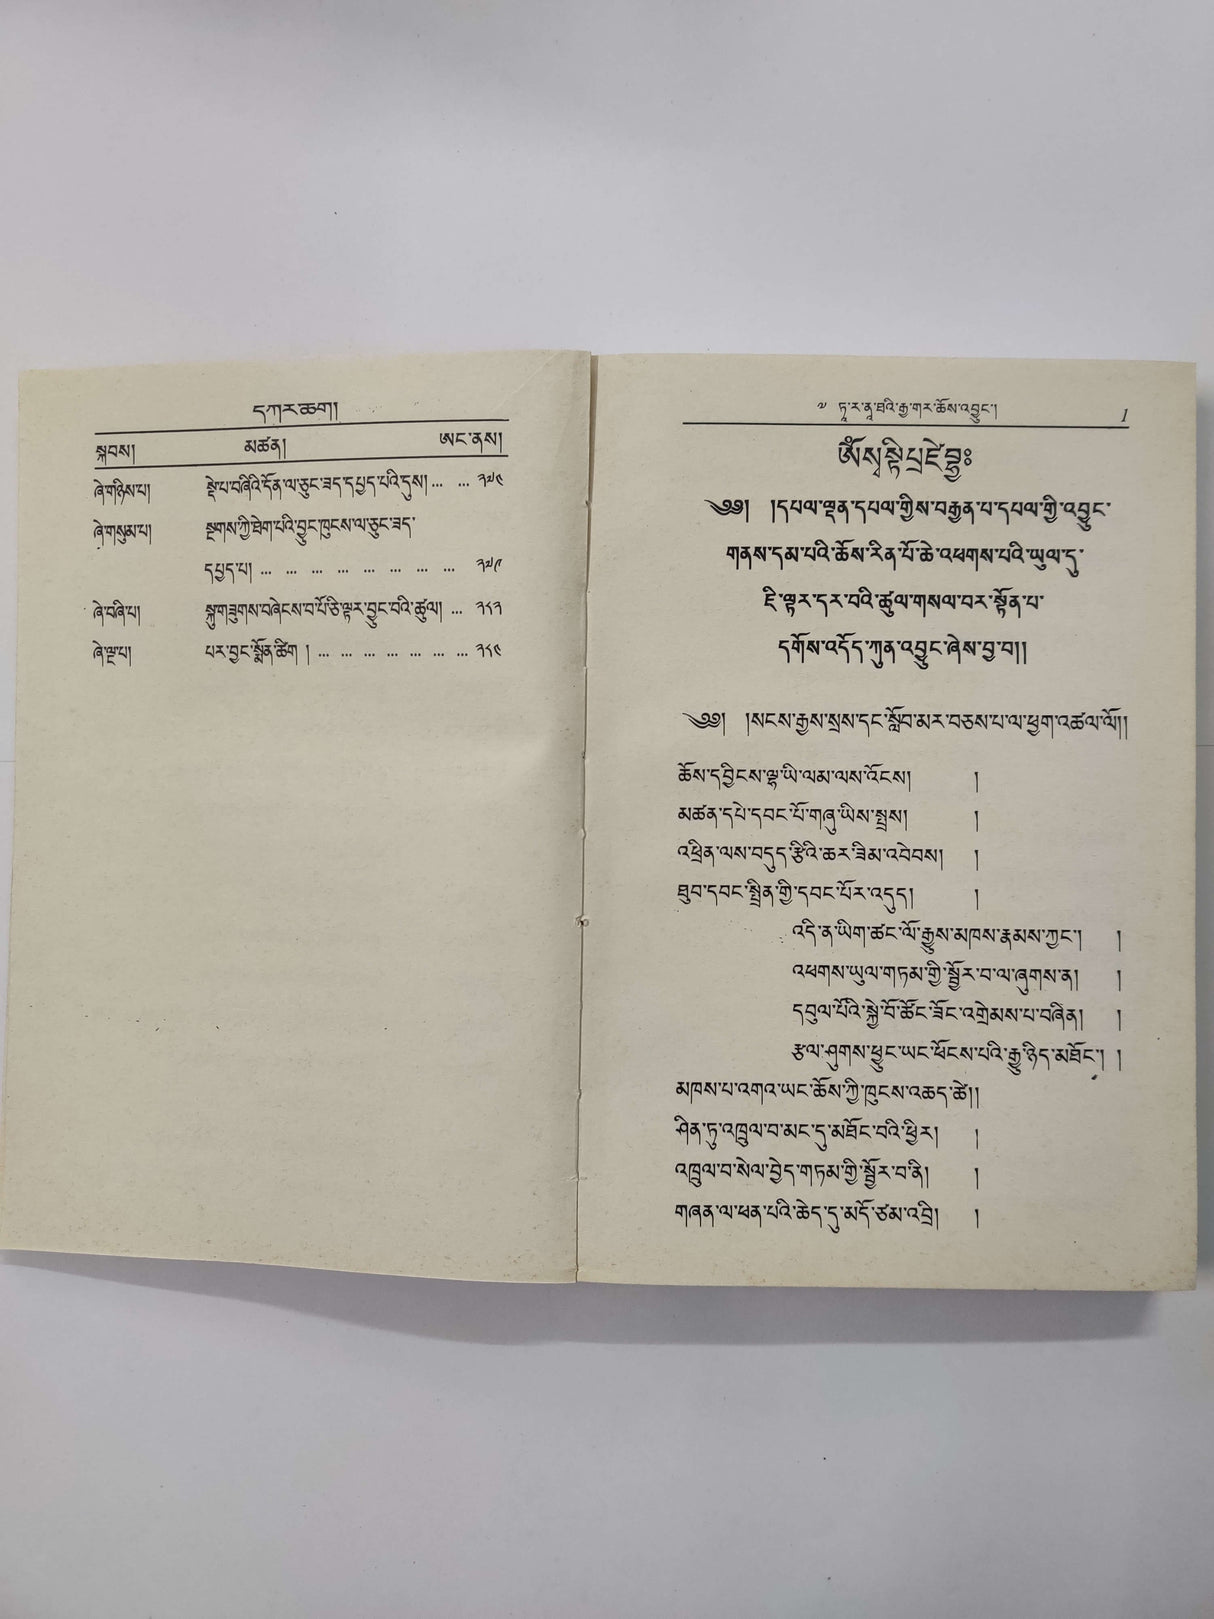 དཀར་ཆག།
སྐབས། མཚན། ཨང་ནས།
ཞེ་གཉིས་པ། སྡེ་པ་བཞིའི་དོན་ལ་ཅུང་ཟད་དཔྱད་པའི་དུས། … … ༢༧༤
ཞེ་གསུམ་པ། སྔགས་ཀྱི་ཐེག་པའི་བྱུང་ཁུངས་ལ་ཅུང་ཟད་
དཔྱད་པ། … … … … … … … … ༢༧༩
ཞེ་བཞི་པ། སྐུ་གཟུགས་བཞེངས་བ་པོ་ཅི་ལྟར་བྱུང་བའི་ཚུལ། … ༢༨༢
ཞེ་ལྔ་པ། པར་བྱང་སྨོན་ཚིག ། … … … … … … … ༢༨༤
༧ ཏཱ་ར་ནཱ་ཐའི་རྒྱ་གར་ཆོས་འབྱུང་། 1
ༀ་སྭསྟི་པྲཛེ་བྷྱཿ
༄༅། །དཔལ་ལྡན་དཔལ་གྱིས་བརྒྱན་པ་དཔལ་གྱི་འབྱུང་
གནས་དམ་པའི་ཆོས་རིན་པོ་ཆེ་འཕགས་པའི་ཡུལ་དུ་
ཇི་ལྟར་དར་བའི་ཚུལ་གསལ་བར་སྟོན་པ་
དགོས་འདོད་ཀུན་འབྱུང་ཞེས་བྱ་བ།།
༄༅། །སངས་རྒྱས་སྲས་དང་སློབ་མར་བཅས་པ་ལ་ཕྱག་འཚལ་ལོ།།
ཆོས་དབྱིངས་ལྷ་ཡི་ལམ་ལས་འོངས། །
མཚན་དཔེ་དབང་པོ་གཞུ་ཡིས་སྤྲས། །
འཕྲིན་ལས་བདུད་རྩིའི་ཆར་ཟིམ་འབེབས། །
ཐུབ་དབང་སྤྲིན་གྱི་དབང་པོར་འདུད། །
འདི་ན་ཡིག་ཚང་ལོ་རྒྱུས་མཁས་རྣམས་ཀྱང་། །
འཕགས་ཡུལ་གཏམ་གྱི་སྦྱོར་བ་ལ་ཞུགས་ན། །
དབུལ་པོའི་སྐྱེ་བོ་ཚོང་ཟོང་འགྲེམས་པ་བཞིན། །
རྩལ་ཤུགས་ཕྱུང་ཡང་ཕོངས་པའི་རྒྱུ་ཉིད་མཐོང་། །
མཁས་པ་འགའ་ཡང་ཆོས་ཀྱི་ཁུངས་འཆད་ཚེ།།
ཤིན་ཏུ་འཁྲུལ་བ་མང་དུ་མཐོང་བའི་ཕྱིར། །
འཁྲུལ་བ་སེལ་བྱེད་གཏམ་གྱི་སྦྱོར་བ་ནི། །
གཞན་ལ་ཕན་པའི་ཆེད་དུ་མདོ་ཙམ་འབྲི། །